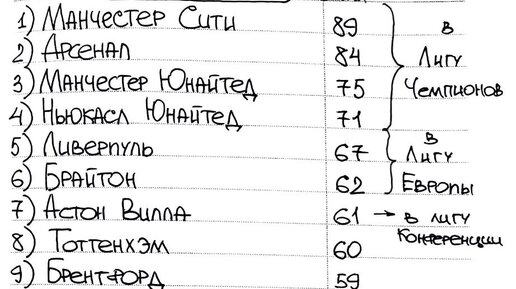 1) Манчестер Сити 89 в
2) Арсенал 84 Лигу
3) Манчестер Юнайтед 75 Чемпионов
4) Ньюкасл Юнайтед 71
5) Ливерпуль 67 в Лигу
6) Брайтон 62 Европы
7) Астон Вилла 61 → в лигу
Конференции
8) Тоттенхэм 60
9) Брентфорд 59